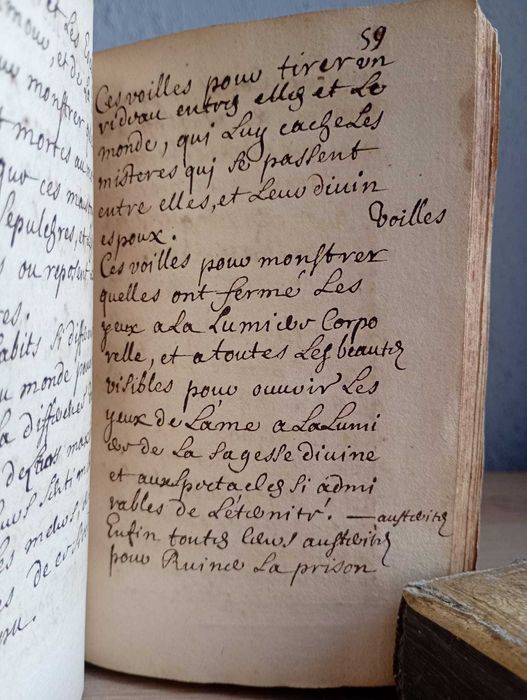 59
Ces voilles pour tirer un
rideau entres elles et Le
monde, qui Luy cache Les
misteres qui se passent
entre elles, et Leur divin
espoux.
Voilles
Ces voilles pour monstrer
quelles ont fermé Les
yeux a La Lumiere Corpo
relle, et a toutes Les beautes
visibles pour ouvrir Les
yeux de Lame a La Lumi
ere de La sagesse divine
et aux spectacles si admi
rables de Léternité. — austerites
Enfin toutes leurs austerites
pour Ruiner La prison
et Les
amour, et de
monstrer
mortes au
que ces
sepulchres, et
ou repose
res.
habits si différe
monde pour
La différe
Leurs senti